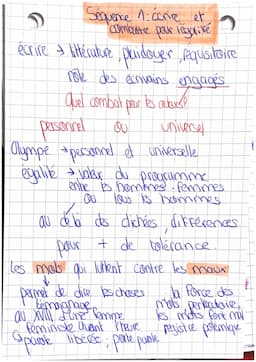 Séquence 1: écrire et
combattre pour l'égalité
écrire → littérature, plaidoyer, réquisitoire
rôle des écrivains engagés
Quel combat pour les auteurs?
personnel ou universel
Olympe → personnel et universelle
égalité → valeur du programme
entre les hommes-femmes
ou tous les hommes
au delà des clichées, différences
pour + de tolérance.
les mots qui luttent contre les maux
permet de dire les choses
témoignage
au XVIII d'une femme
féministe avant l'heure
parole libérée; porte parole
la force des
mots percutants,
les mots font mal
registre polémique